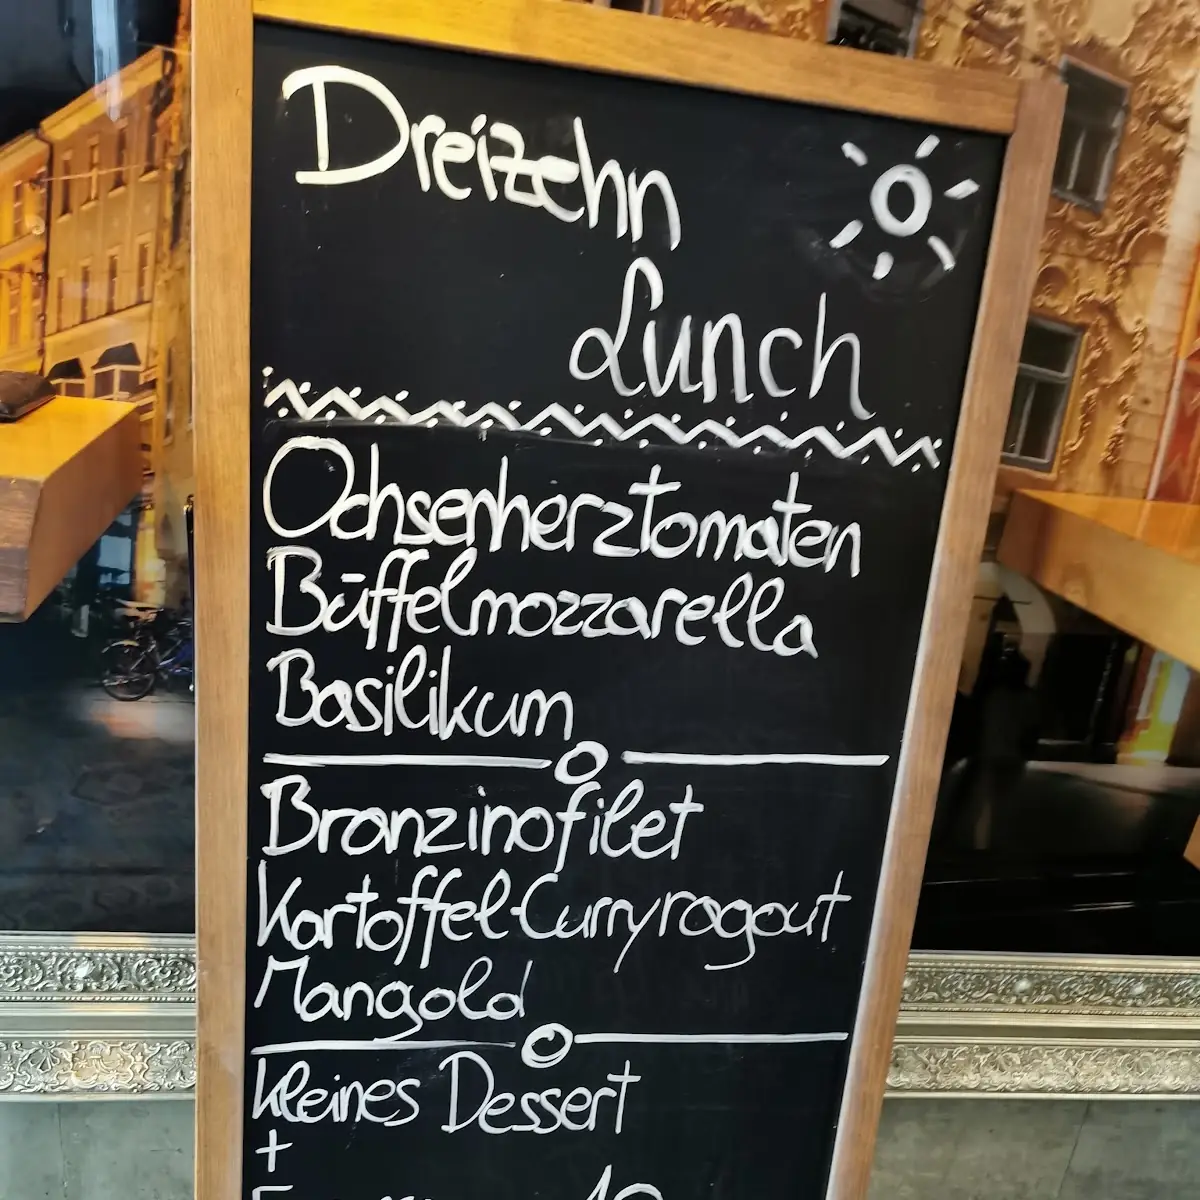 Dreizehn
Lunch
Ochsenherztomaten
Büffelmozzarella
Basilikum
Bronzinofilet
Kartoffel-Curryragout
Mangold
Kleines Dessert
+